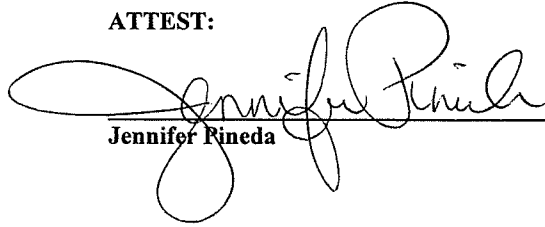 ATTEST:
Jennifer Pineda
Jennifer Pineda